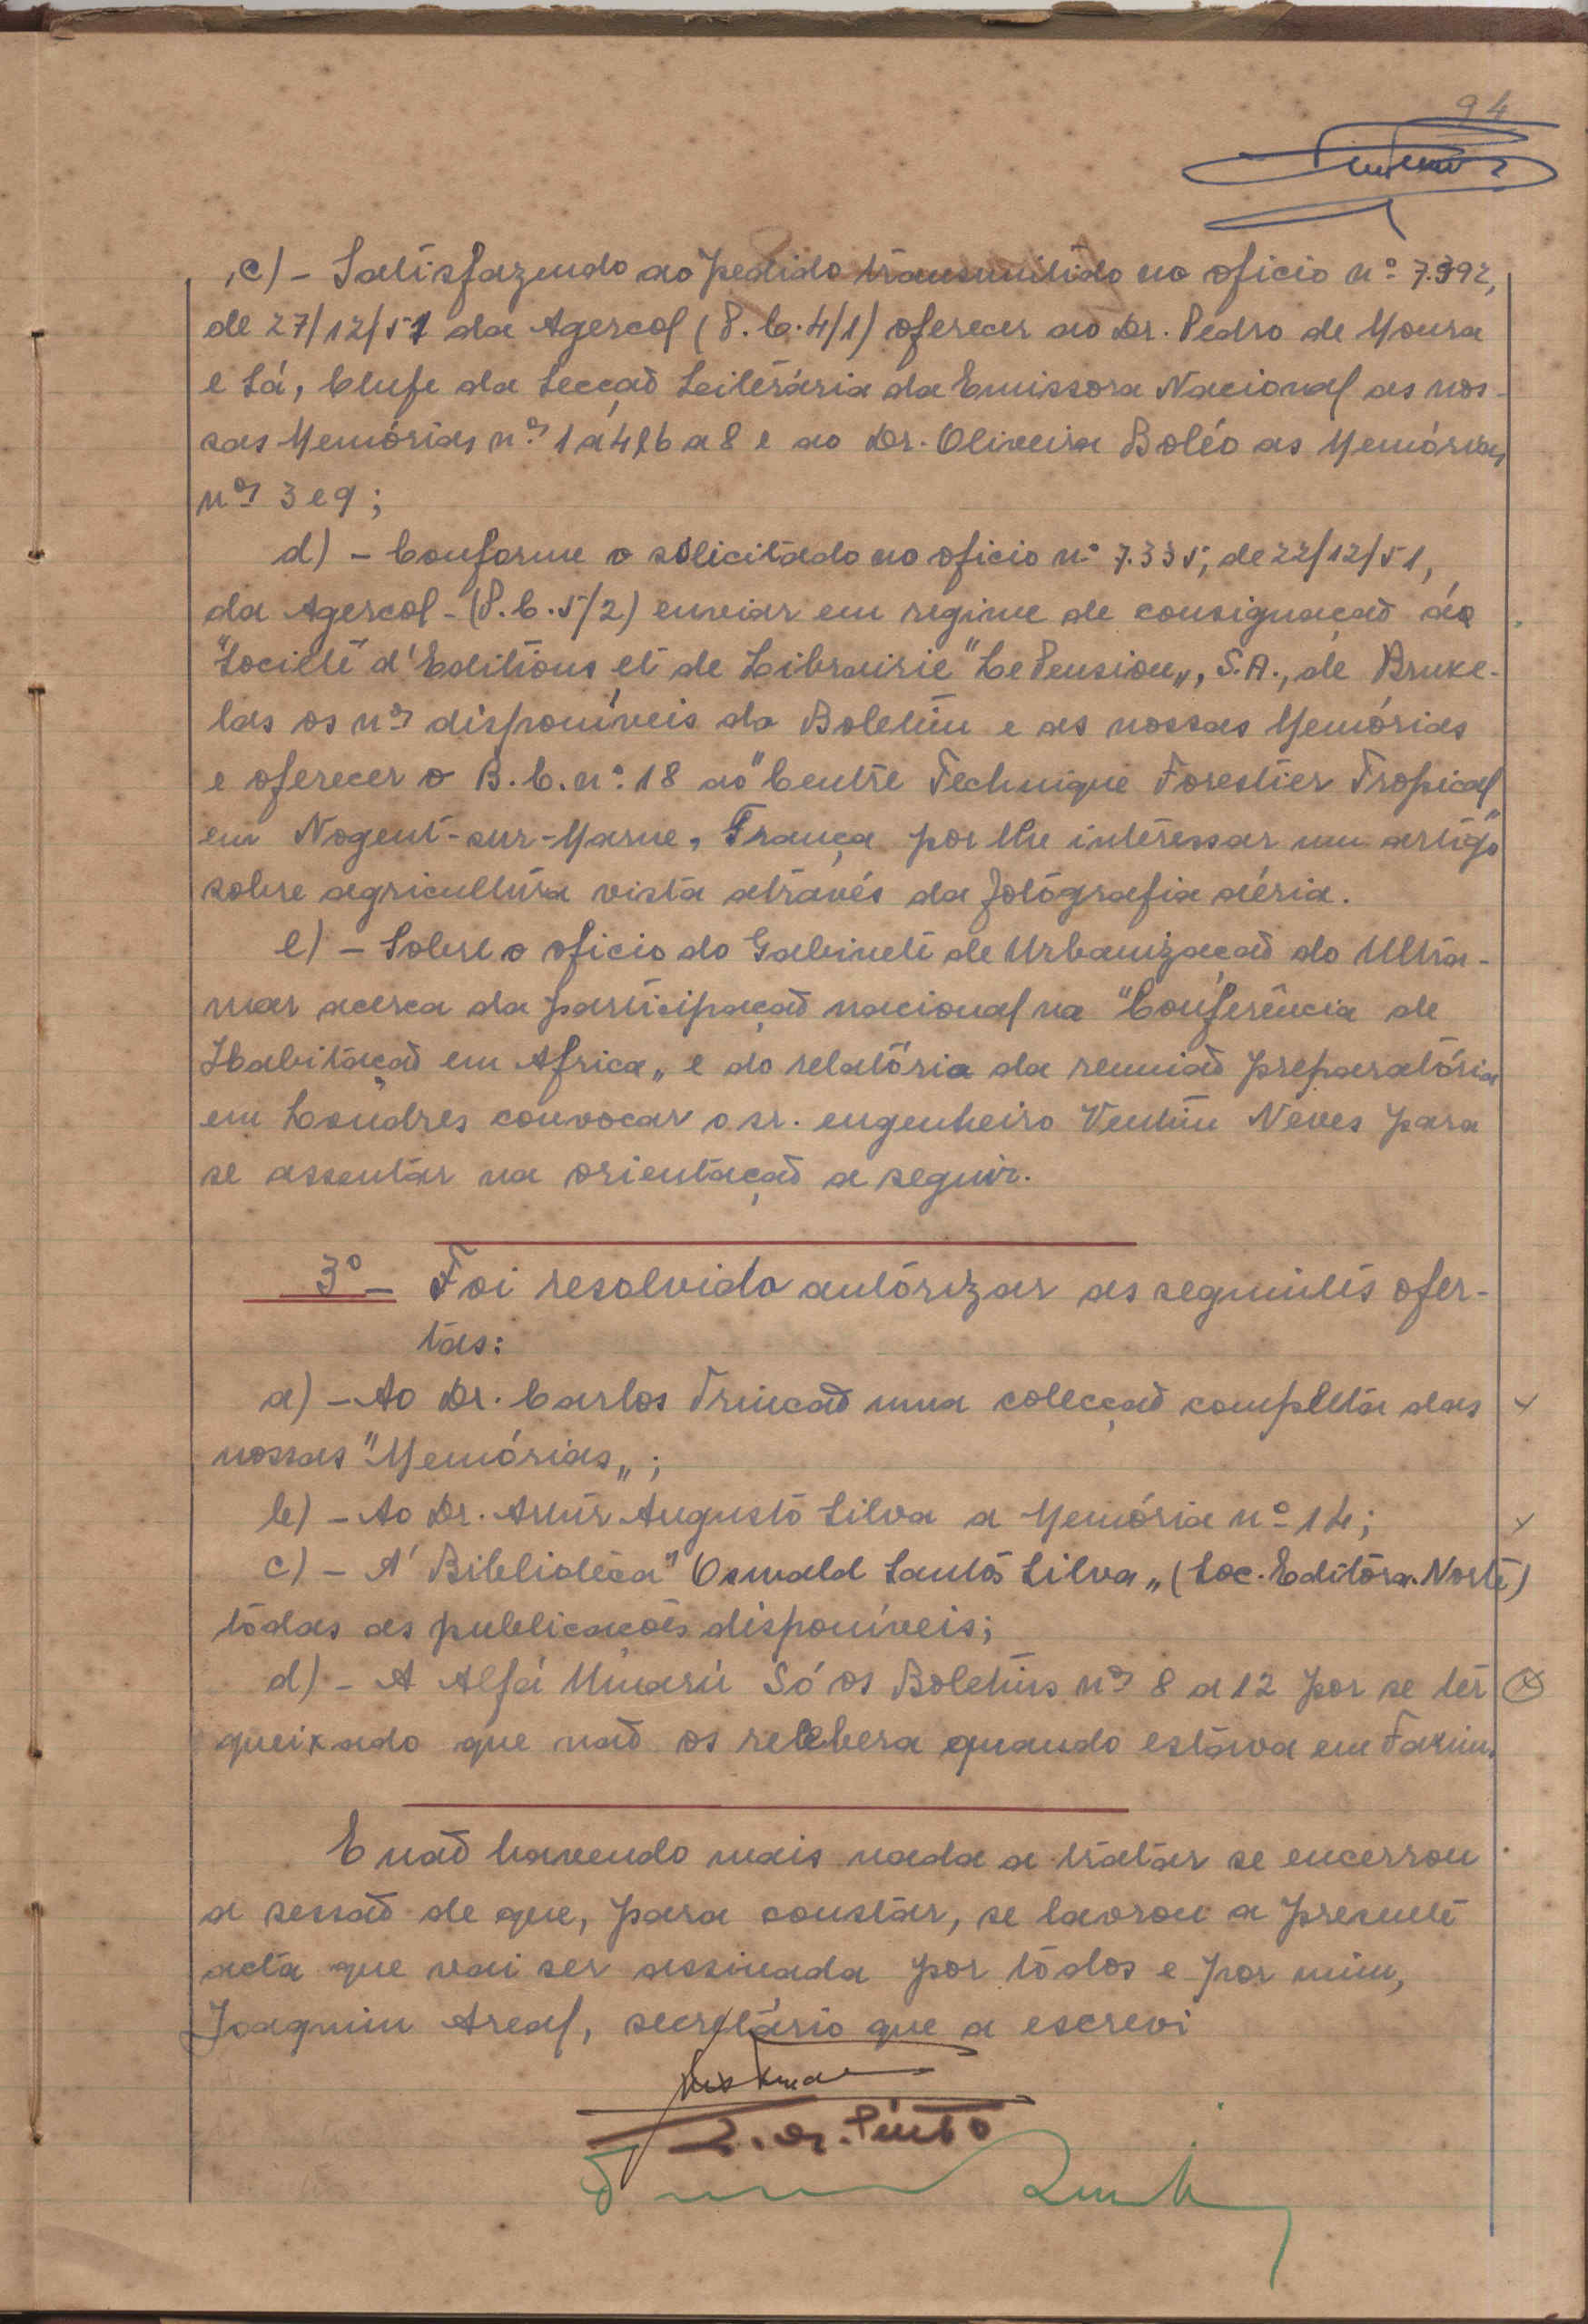 94
c) - Satisfazendo ao pedido transmitido no oficio nº 7.392,
de 27/12/51 da Agercol (P.C.4/1) oferecer ao Dr. Pedro de Moura
e Sá, Chefe da Secção Leiterária da Emissora Nacional as nos-
sas Memórias nºs 1 a 4 e 6 a 8 e ao Dr. Oliveira Boléo as Memórias
nºs 3 e 9;
d) - Conforme o solicitado no oficio nº 7.335, de 22/12/51,
da Agercol - (P.C.5/2) enviar em regime de consignação áo
"Societé d'Editions et de Librairie "Le Pension„, S.A., de Bruxe-
las os nºs disponíveis do Boletim e as nossas Memórias
e oferecer o B.C. nº 18 ao "Centre Technique Forestier Tropical"
em Nogent-sur-Marne, França por lhe interessar um artigo
sobre agricultura vista através da fotografia aéria.
e) - Sobre o oficio do Gabinete de Urbanização do Ultra-
mar acerca da participação nacional na "Conferência de
Habitação em Africa„ e do relatória da reunião preparatória
em Londres convocar o sr. engenheiro Ventim Neves para
se assentar na orientação a seguir.
3º - Foi resolvido autorizar as seguintes ofer-
tas:
a) - Ao Dr. Carlos Trincão uma colecção completa das
nossas "Memórias„;
b) - Ao Dr. Artur Augusto Silva a Memória nº 14;
c) - A' Biblioteca "Oswald Santos Silva„ (Soc. Editora Norte)
todas as publicações disponíveis;
d) - A Alfá Umarú Só os Boletins nºs 8 a 12 por se ter
queixado que não os recebera quando estava em Farim.
E não havendo mais nada a tratar se encerrou
a sessão de que, para constar, se lavrou a presente
acta que vai ser assinada por todos e por mim,
Joaquim Areal, secretário que a escrevi
Pinto